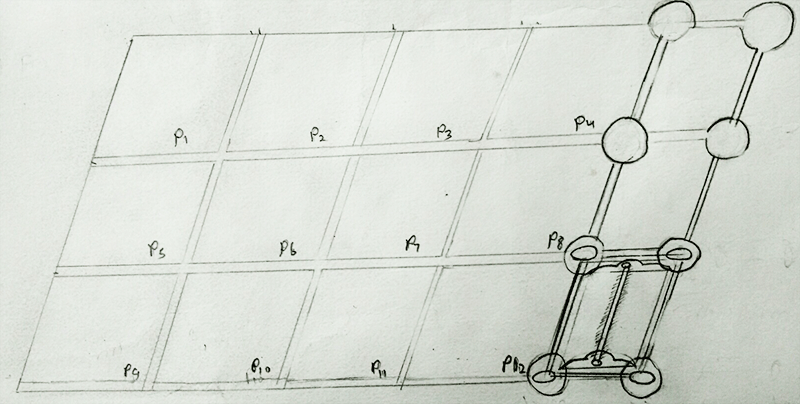 P1 P2 P3 P4
P5 P6 P7 P8
P9 P10 P11 P12